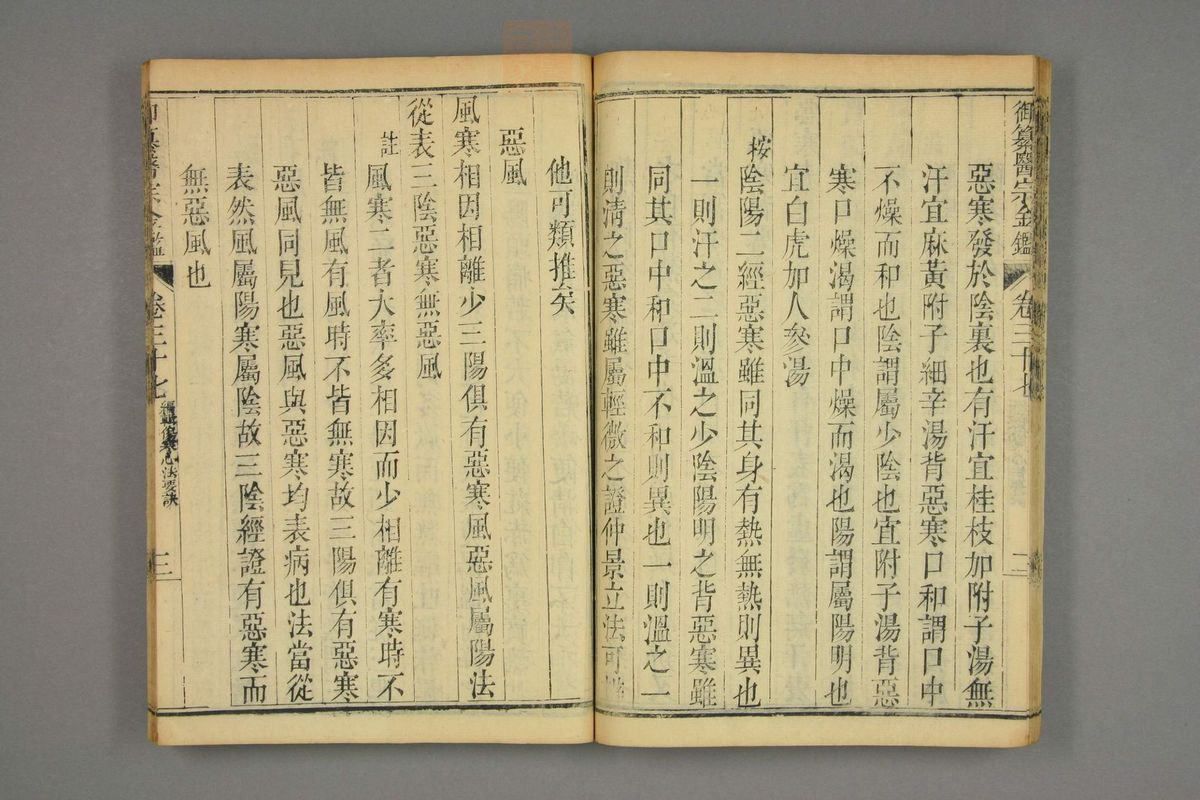 御纂醫宗金鑑 卷三十七
惡寒發於陰裏也有汗宜桂枝加附子湯無
汗宜麻黃附子細辛湯背惡寒口和謂口中
不燥而和也陰謂屬少陰也宜附子湯背惡
寒口燥渴謂口中燥而渴也陽謂屬陽明也
宜白虎加人參湯
按陰陽二經惡寒雖同其身有熱無熱則異也
一則汗之二則溫之少陰陽明之背惡寒雖
同其口中和口中不和則異也一則溫之一
則清之惡寒雖屬輕微之證仲景立法可
他可類推矣
惡風
風寒相因相離少三陽俱有惡寒風惡風屬陽法
從表三陰惡寒無惡風
註風寒二者大率多相因而少相離有寒時不
皆無風有風時不皆無寒故三陽俱有惡寒
惡風同見也惡風與惡寒均表病也法當從
表然風屬陽寒屬陰故三陰經證有惡寒而
無惡風也
卷三十七 傷寒心法要訣 三